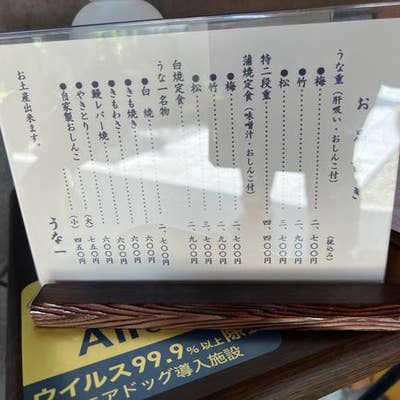 お き
うな重(肝吸い・おしんこ付) (税込み)
●梅 二、七〇〇円
●竹 二、九〇〇円
●松 三、七〇〇円
特二段重 四、四〇〇円
蒲焼定食(味噌汁・おしんこ付)
●梅 二、七〇〇円
●竹
●松 
白焼定食 二、九〇〇円
うな一名物
●白焼 二、
●きも焼き 六〇〇円
●きもわさ 六〇〇円
●鰻レバー焼 六〇〇円
●やきとり (大) 七五〇円
●自家製おしんこ (小) 四五〇円
お土産出来ます。 うな一
Air
ウイルス99.9%以上除
エアドッグ導入施設